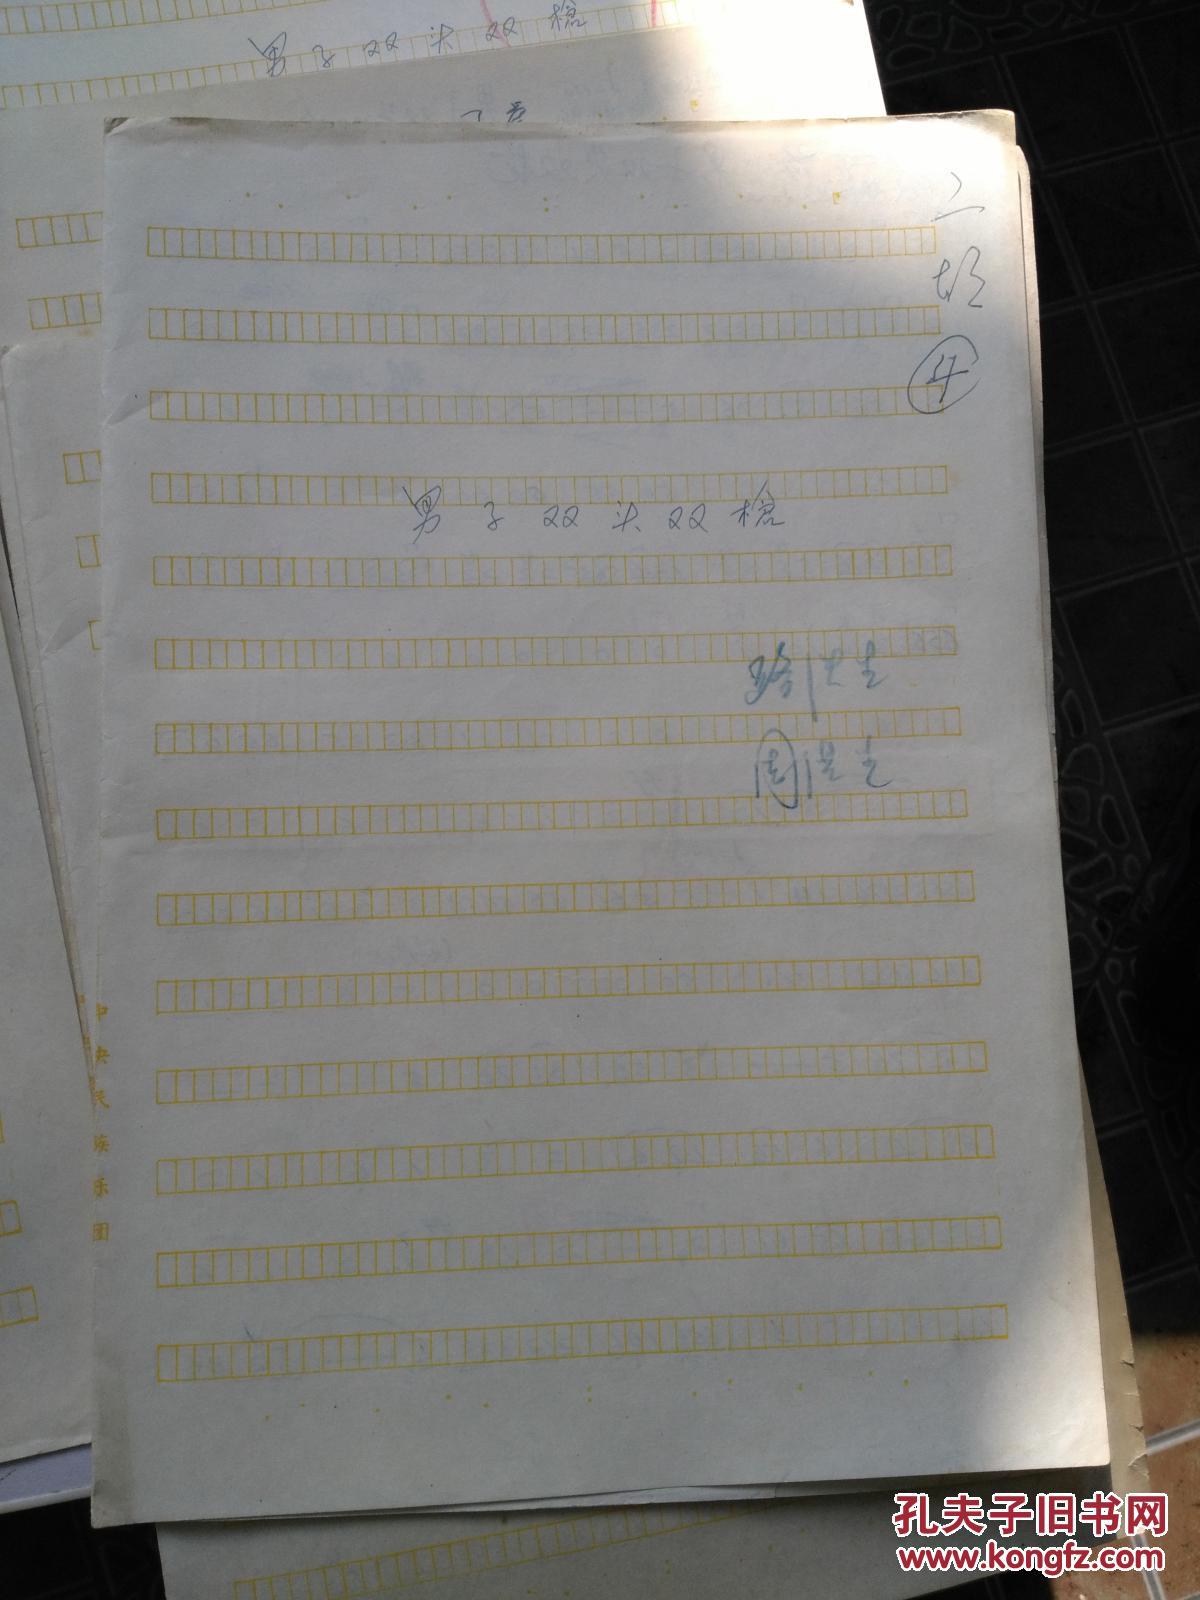 男子双头双枪
二胡
④
男子双头双枪
周
中央民族乐团
孔夫子旧书网
www.kongfz.com